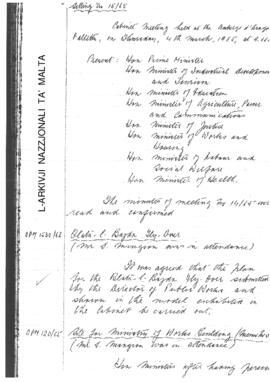 Sitting No 15/65
Cabinet Meeting held at the Auberge d'Aragon
Valletta, on Thursday, 4th March, 1965, at
Present : Hon Prime Minister
Hon Minister of Industrial Development
and Tourism
Hon Minister of Education
Hon Minister of Agriculture, Power
and Communications
Hon Minister of Justice
Hon Minister of Works and
Housing
Hon Minister of Labour and
Social Welfare
Hon Minister of Health.
The minutes of meeting No 14/65 were
read and confirmed
OPM 1530/62 Blata l-Bajda Fly Over
(Mr S. Mangion was in attendance)
It was agreed that the plan
for the Blata l-Bajda fly over submitted
by the Director of Public Works and
shown in the model exhibited in
the Cabinet be carried out.
OPM 120/65 Site for Ministry of Works Building
(Mr S. Mangion was in attendance)
Hon Minister after having
L-ARKIVJI NAZZJONALI TA' MALTA